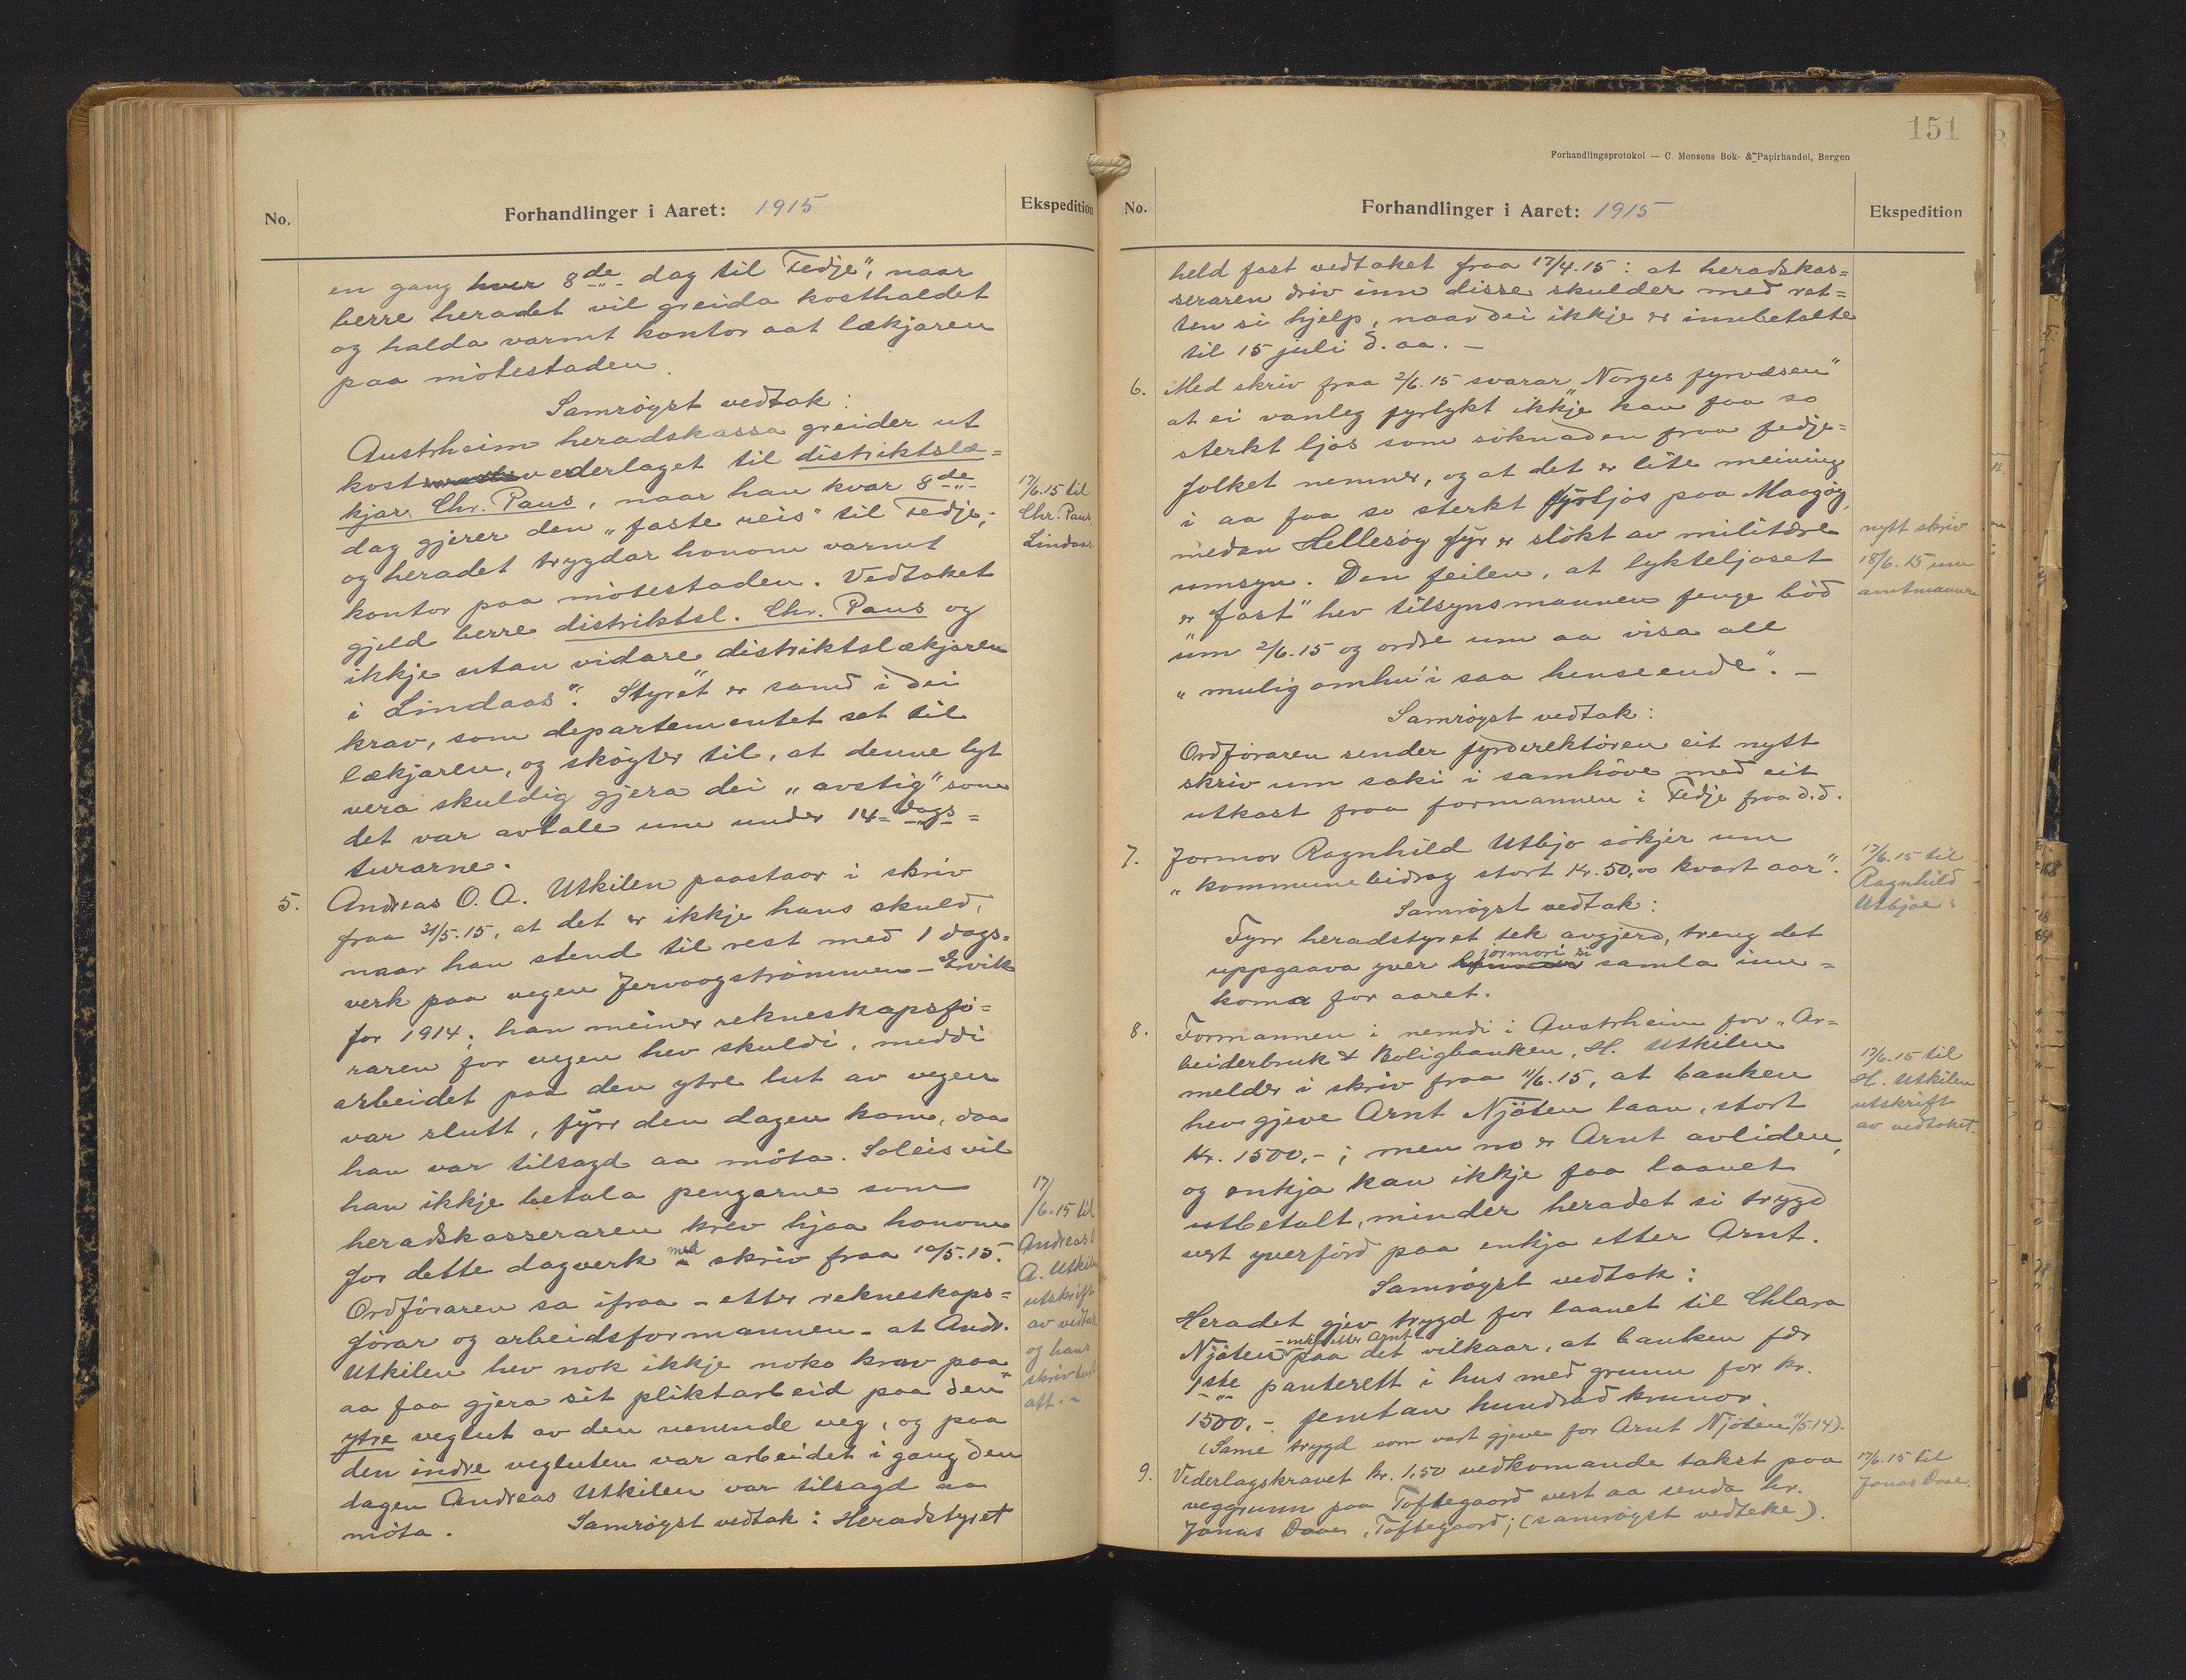 No.
Forhandlinger i Aaret: 1915
Ekspedition
en gang hver 8de dag til Fedje", naar
berre heradet vil greida kosthaldet
og halda varmt kontor aat lækjaren
paa mötestaden.
Samröyst vedtak:
Austrheim heradskassa greider ut
kostvederlaget til distriktslæ=
kjar Chr. Paus, naar han kvar 8de
dag gjerer den "faste reis" til Fedje;
og heradet trygdar honom varmt
kontor paa mötestaden. Vedtaket
gjeld berre distriktsl. Chr. Paus og
ikkje utan vidare distriktslækjaren
i Lindaas". "Styret er samd i dei
krav, som departementet set til
lækjaren, og sköyter til, at denne lyt
vera skuldig gjera dei "avstig" som
det var avtale um under 14-dags-
turarne.
17/6.15 til
Chr. Paus,
Lindaas.
5. Andreas O. A. Utkilen paastaar i skriv
fraa 31/5.15, at det er ikkje hans skuld,
naar han stend til rest med 1 dags-
verk paa vegen Jervaagströmmen - Ervik
for 1914; han meiner rekneskapsfö=
raren for vegen hev skuldi, meddi
arbeidet paa den ytre lut av vegen
var slutt, fyrr den dagen kom, daa
han var tilsagd aa möta. Soleis vil
han ikkje betala pengarne som
heradskasseraren krev hjaa honom
for dette dagverk med skriv fraa 10/5.15.
Ordföraren sa ifraa - etter rekneskaps=
förar og arbeidsformannen - at Andr.
Utkilen hev nok ikkje noko krav paa
aa faa gjera sit pliktarbeid paa den
ytre veglut av den nemnde veg, og paa
den indre vegluten var arbeidet i gang den
dagen Andreas Utkilen var tilsagd aa
möta. Samröyst vedtak: Heradstyret
17/6.15 til
Andreas O.
A. Utkilen
utskrift
av vedtak
og hans
skriv
att.-
151
Forhandlingsprotokol — C. Monsens Bok- & Papirhandel, Bergen
No.
Forhandlinger i Aaret: 1915
Ekspedition
held fast vedtaket fraa 17/4.15: at heradskas=
seraren driv inn disse skulder med ret=
ten si hjelp, naar dei ikkje er innbetalte
til 15 juli d. aa. -
6. Med skriv fraa 2/6.15 svarar "Norges fyrvæsen"
at ei vanleg fyrlykt ikkje kan faa so
sterkt ljos som söknaden fraa fedje=
folket nemner, og at det er lite meining
i aa faa so sterkt fyrljos paa Maagöy,
medan Hellesöy fyr er slökt av militære
umsyn. Den feilen, at lykteljoset
er "fast" hev tilsynsmannen fenge böd
um 2/6.15 og ordre um aa visa all
"mulig omhu i saa henseende". -
Samröyst vedtak:
Ordföraren sender fyrdirektören eit nytt
skriv um saki i samhöve med eit
utkast fraa formannen i Fedje fraa d.d.
nytt skriv
18/6.15 um
amtmannen
7. Jormor Ragnhild Utbjo sökjer um
"kommunebidrag stort Kr. 50,00 kvart aar".
Samröyst vedtak:
Fyrr heradstyret tek avgjerd, treng det
uppgaava yver jormori si samla inn=
koma for aaret.
17/6.15 til
Ragnhild
Utbjoe.
8. Formannen i nemdi i Austrheim for "Ar=
beiderbruk & Boligbanken, H. Utkilen
melder i skriv fraa 11/6.15, at banken
hev gjeve Arnt Njöten laan, stort
Kr. 1500,-; men no er Arnt avliden,
og enkja kan ikkje faa laanet
utbetalt, minder heradet si trygd
vert yverförd paa enkja etter Arnt.
Samröyst vedtak:
Heradet gjev trygd for laanet til Chlara
Njöten - enkja etter Arnt - paa det vilkaar, at banken fær
1ste panterett i hus med grunn for kr.
1500,- femtan hundrad krunor.
(Same trygd som vart gjeve for Arnt Njöten 11/5-14).
17/6.15 til
H. Utkilen
utskrift
av vedtaket.
9. Vederlagskravet kr. 1,50 vedkomande takst paa
veggrunn paa Toftegaard vert aa senda hr.
Jonas Daae, Toftegaard; (samröyst vedteke).
17/6.15 til
Jonas Daae.